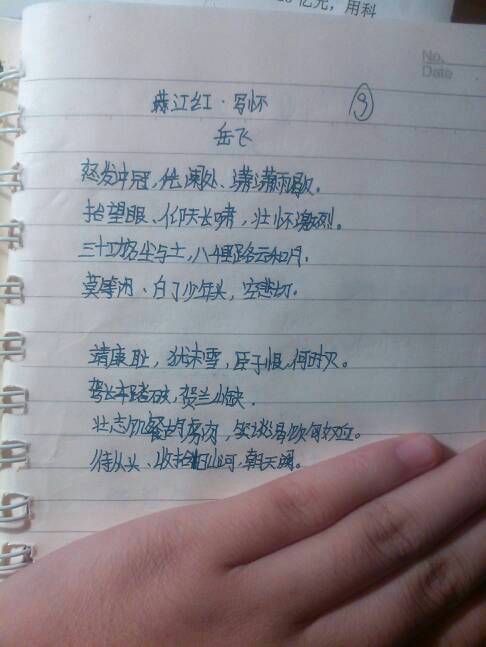 亿元，用科
No.
Date
满江红·写怀
9
岳飞
怒发冲冠，凭阑处、潇潇雨歇。
抬望眼、仰天长啸，壮怀激烈。
三十功名尘与土，八千里路云和月。
莫等闲、白了少年头，空悲切。
靖康耻，犹未雪，臣子恨，何时灭。
驾长车踏破，贺兰山缺。
壮志饥餐胡虏肉，笑谈渴饮匈奴血。
待从头、收拾旧山河，朝天阙。